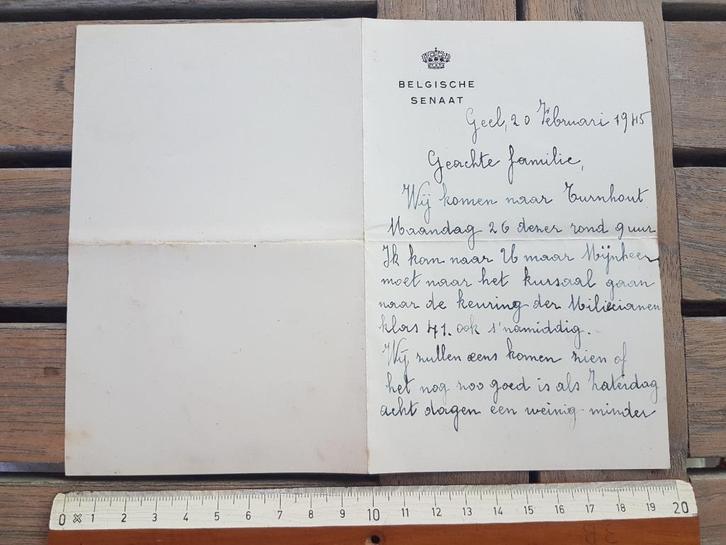 BELGISCHE
SENAAT
Geel, 20 Februari 1945
Geachte familie,
Wij komen naar Turnhout
Maandag 26 dezer rond 9 uur
Ik kom naar U maar Mijnheer
moet naar het kursaal gaan
naar de keuring der Milicianen
klas 41. ook s'namiddig.
Wij zullen eens komen zien of
het nog zoo goed is als Zaterdag
acht dagen een weinig minder
0 1 2 3 4 5 6 7 8 9 10 11 12 13 14 15 16 17 18 19 20